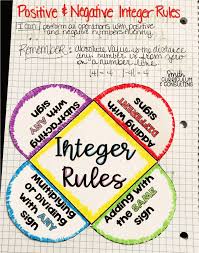 Positive & Negative Integer Rules
I can: perform all operations with positive
and negative numbers fluently.
Remember: absolute value is the distance
any number is from zero
on a number line.
|4| = 4 |-4| = 4
Smith
CURRICULUM
& CONSULTING
Subtracting
with ANY
sign
Adding with
DIFFERENT
sign
Integer
Rules
Multiplying
or dividing
with ANY
sign
Adding with
the SAME
sign